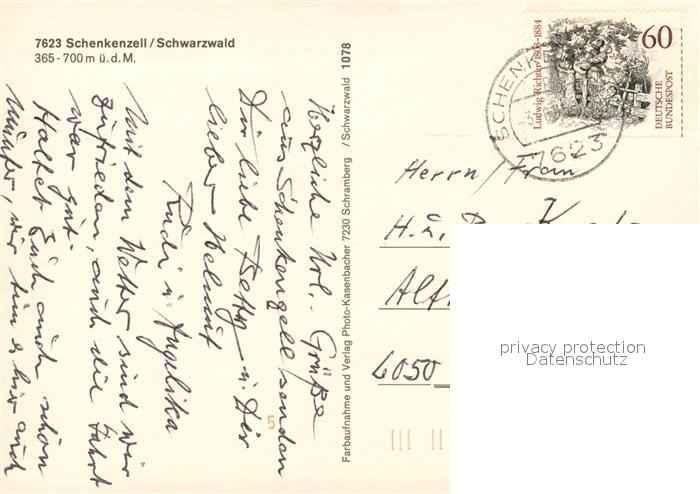 7623 Schenkenzell / Schwarzwald
365 - 700 m ü. d. M.
Herzliche Url. - Grüße
aus Schenkenzell senden
Dir liebe Betty u. Dir
lieber Helmut
Rudi u. Angelika
Mit dem Wetter sind wir
zufrieden, auch die Fahrt
war gut.
Haltet Euch auch schön
munter, wir tun es hier auch
Farbaufnahme und Verlag Photo-Kasenbacher 7230 Schramberg / Schwarzwald 1078
5
SCHENK
7623
Ludwig Richter 1803-1884
60
DEUTSCHE
BUNDESPOST
Herrn / Frau
H. u.
6050
privacy protection
Datenschutz